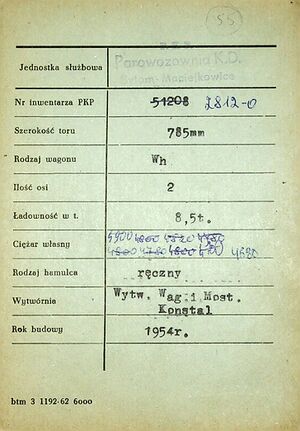 55
P.K.P.
Jednostka służbowa Parowozownia K.D.
Bytom-Maciejkowice
Nr inwentarza PKP 51208 2812-0
Szerokość toru 785mm
Rodzaj wagonu Wh
Ilość osi 2
Ładowność w t. 8,5t.
Ciężar własny 4900 4860 4820
4800 4780 4800 4620
Rodzaj hamulca ręczny
Wytwórnia Wytw. Wag.i Most.
Konstal
Rok budowy 1954r.
btm 3 1192-62 6000